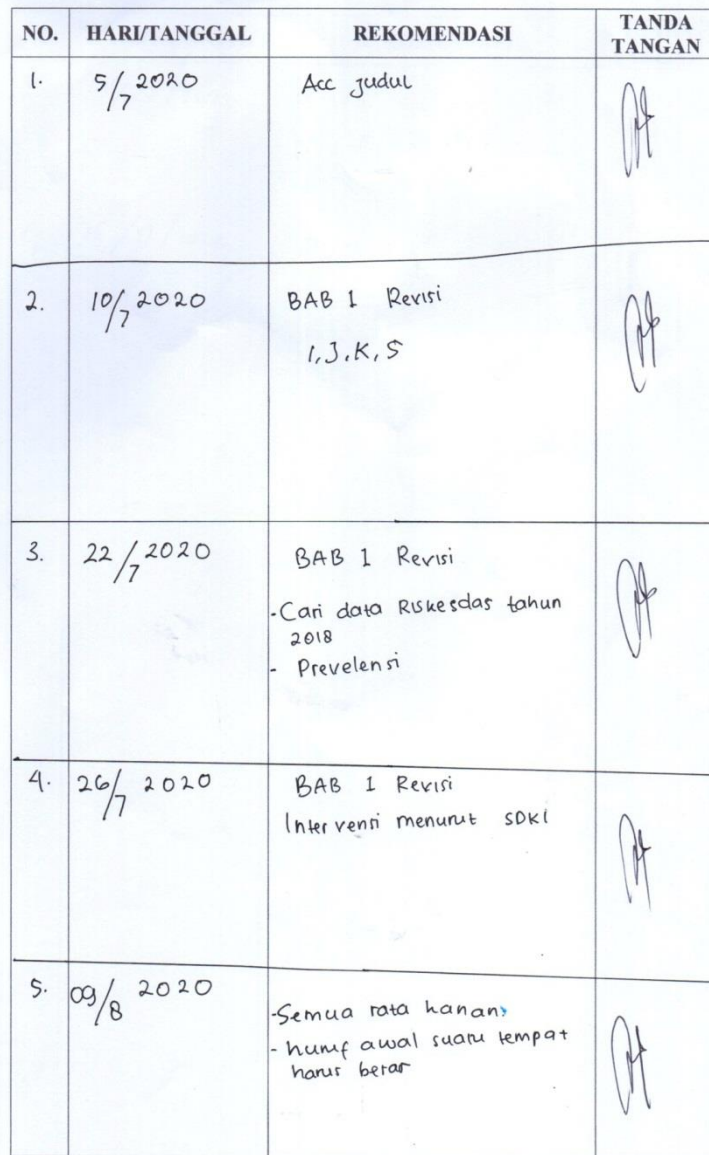 NO. HARI/TANGGAL REKOMENDASI TANDA TANGAN
1. 5/7 2020 Acc Judul
2. 10/7 2020 BAB 1 Revisi
I, J, K, S
3. 22/7 2020 BAB 1 Revisi
- Cari data Riskesdas tahun
2018
- Prevelensi
4. 26/7 2020 BAB 1 Revisi
Intervensi menurut SDKI
5. 09/8 2020
- Semua rata kanan
- huruf awal suatu tempat
harus besar